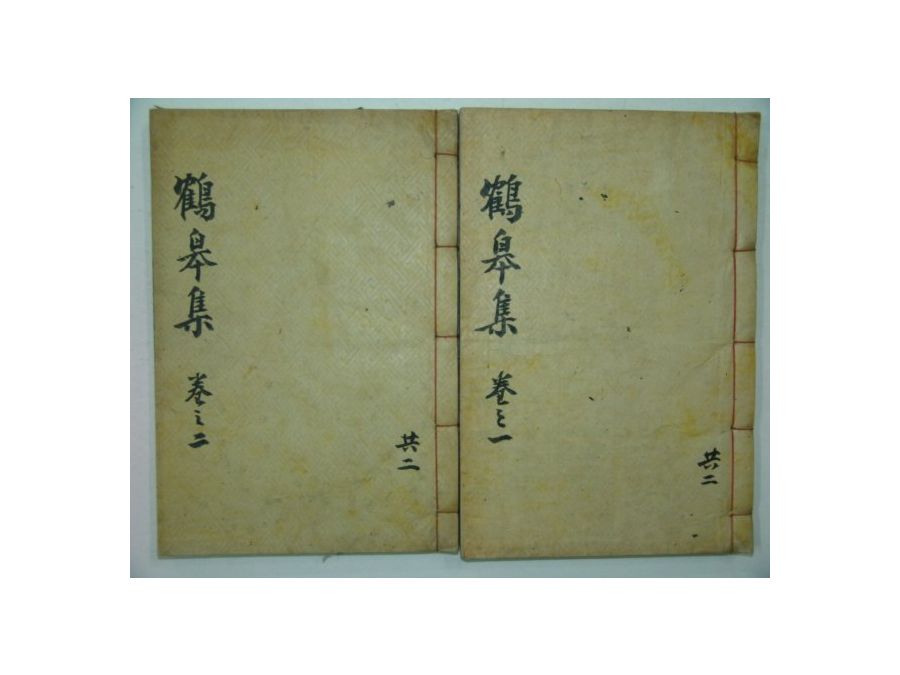 鶴皋集 卷之一
共二
鶴皋集 卷之二
共二